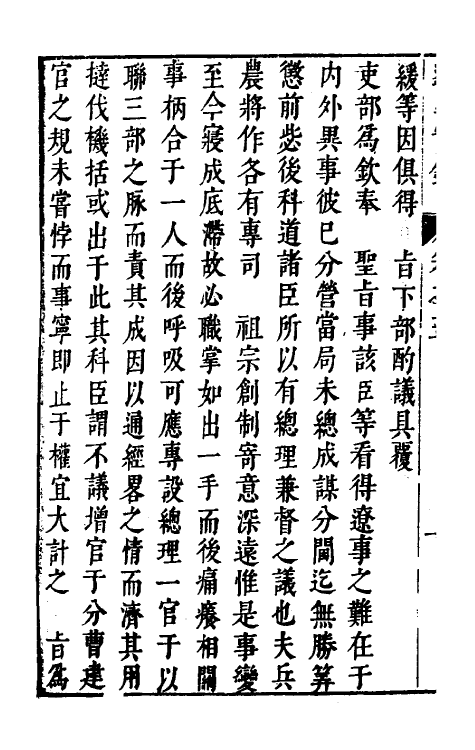 緩等因俱得　旨下部酌議具覆
吏部為欽奉　聖旨事該臣等看得遼事之難在于
内外異事彼已分營當局未總成謀分閫迄無勝筭
懲前毖後科道諸臣所以有總理兼督之議也夫兵
農將作各有專司　祖宗創制寄意深遠惟是事變
至今寢成底滯故必職掌如出一手而後痛癢相關
事柄合于一人而後呼吸可應專設總理一官于以
聯三部之脉而責其成因以通經畧之情而濟其用
撻伐機括或出于此其科臣謂不議增官于分曹建
官之規未嘗悖而事寧即止于權宜大計之　旨為